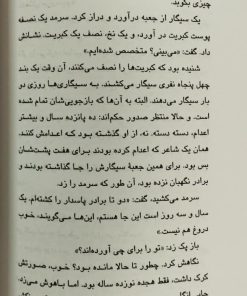 چیزی بگوید.
یک سیگار از جعبه درآورد و دراز کرد. سرمد یک نصفه
پوست کبریت در آورد، و یک نخ، نصف یک کبریت. نشانش
داد. گفت: «می‌بینی؟ متخصص شده‌ایم.»
شنیده بود که کبریت‌ها را نصف می‌کنند، آن وقت یک بند
چهل پنجاه نفری سیگار می‌کشند. به سیگاری‌ها روزی دو
نخ می‌دهند. البته به آن‌ها که بازجویی‌شان تمام شده
است. و حالا منتظر صدور حکم‌اند: ده پانزده سال و بیشتر
اعدام، دسته دسته. نه، از او گذشته بود که اعدامش کنند.
همان یک شاعر که اعدام کرده بودند برای هفت پشت‌شان
بس بود. برای همین جعبهٔ سیگارش را جا گذاشته بودند و
برادر نگهبان نزده بود، آن طور که سرمد را زد.
سرمد می‌کشید، گفت: «دو تا برادر پاسدار را کشته‌ام. یک
سال و سه روز است این جا هستم. این‌ها می‌گویند، خوب
دروغ هم نیست.»
باز یک زد: «تو را برای چی آورده‌اند؟»
نگاهش کرد. چطور تا حالا مانده بود؟ خوب، صورتش
کرک داشت، فقط هجده نوزده ساله بود. اما باهوش می‌زد.